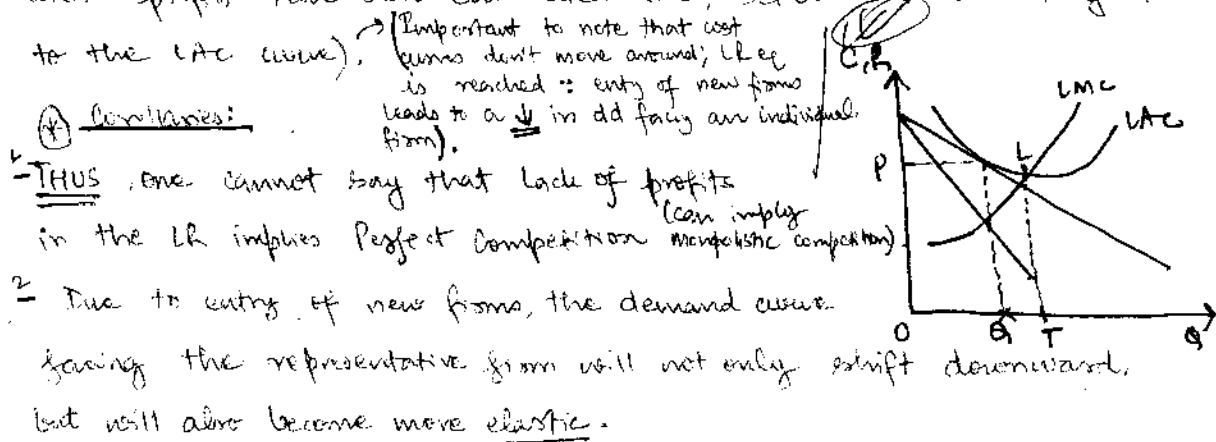 to the LAC curve).
(Important to note that cost
curves don't move around; LR eq
is reached ∵ entry of new firms
leads to a ↓ in dd facing an individual
firm).
* Corollaries:
1- THUS, one cannot say that lack of profits
in the LR implies Perfect Competition (can imply
monopolistic competition).
2- Due to entry of new firms, the demand curve
facing the representative firm will not only shift downward,
but will also become more elastic.
C,R
LMC
LAC
L
P
O
Q
T
Q